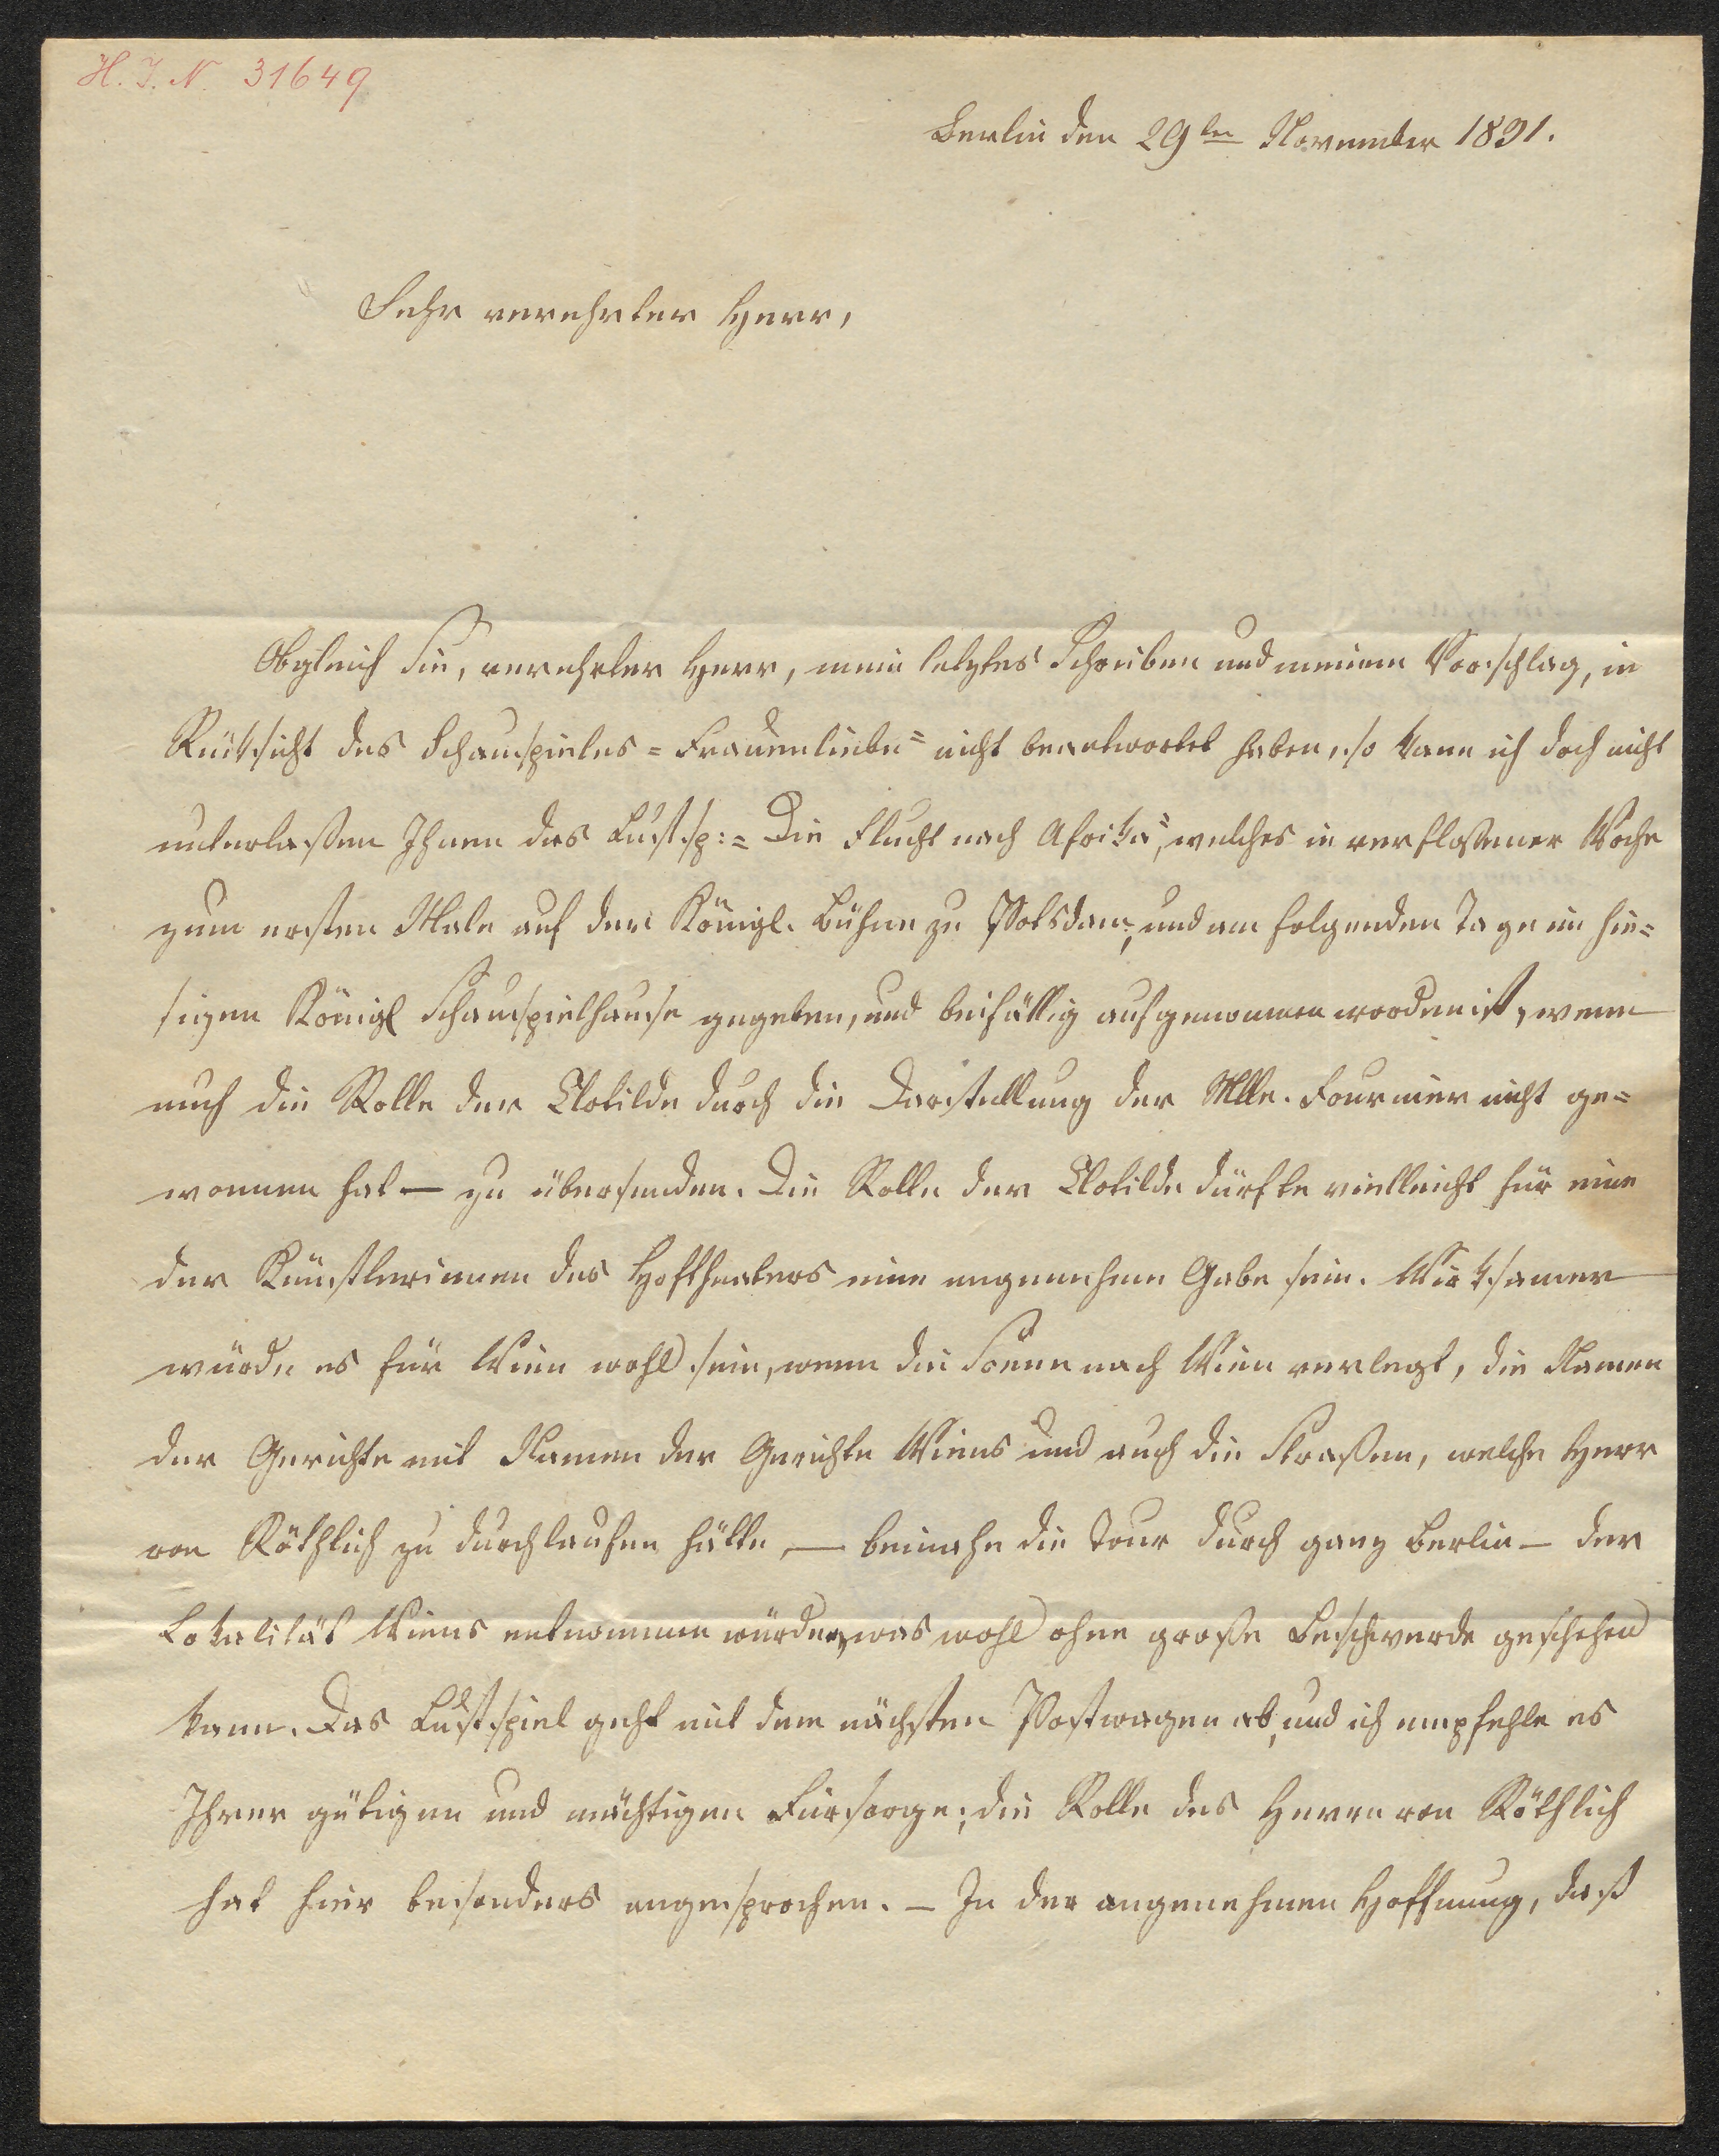 H. I. N. 31649
Berlin den 29ten November 1831.
Sehr verehrter Herr,
Obgleich Sie, verehrter Herr, mein letztes Schreiben und meinen Vorschlag, in
Rücksicht des Schauspieles = Frauenliebe = nicht beantwortet haben, so kann ich doch nicht
unterlaßen Ihnen das Lustsp: = Die Flucht nach Afrika =, welches in verfloßener Woche
zum ersten Male auf der Königl. Bühne zu Potsdam, und am folgenden Tage im hie=
sigen Königl Schauspielhause gegeben, und beifällig aufgenommen worden ist, wenn
auch die Rolle der Clotilde durch die Darstellung der Mlle. Fournier nicht ge=
wonnen hat — zu übersenden. Die Rolle der Clotilde dürfte vielleicht für eine
der Künstlerinnen des Hoftheaters eine angenehme Gabe sein. Wirksamer
würde es für Wien wohl sein, wenn die Scene nach Wien verlegt, die Namen
der Gerichte mit Namen der Gerichte Wiens und auch die Straßen, welche Herr
von Röthlich zu durchlaufen hätte, — beinahe die Tour durch ganz Berlin — der
Lokalität Wiens entnommen würden, was wohl ohne große Beschwerde geschehen
kann. Das Lustspiel geht mit dem nächsten Postwagen ab, und ich empfehle es
Ihrer gütigen und mächtigen Fürsorge; die Rolle des Herrn von Röthlich
hat hier besonders angesprochen. — In der angenehmen Hoffnung, daß